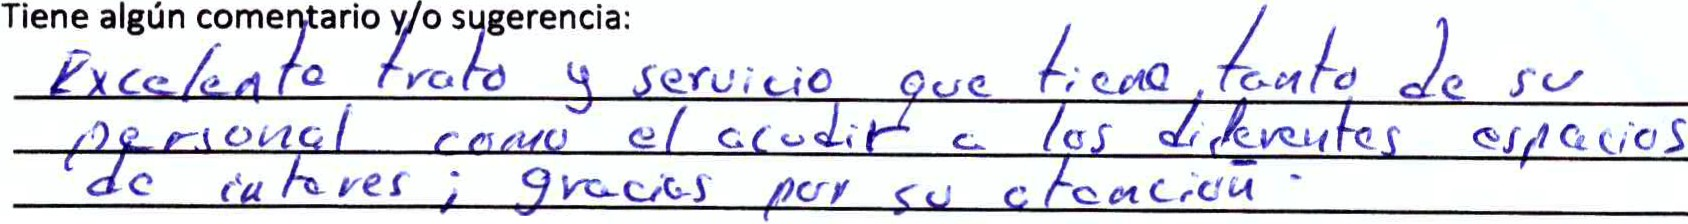 Tiene algún comentario y/o sugerencia:
Excelente trato y servicio que tiene, tanto de su
personal como el acudir a los diferentes espacios
de interes; gracias por su atención.